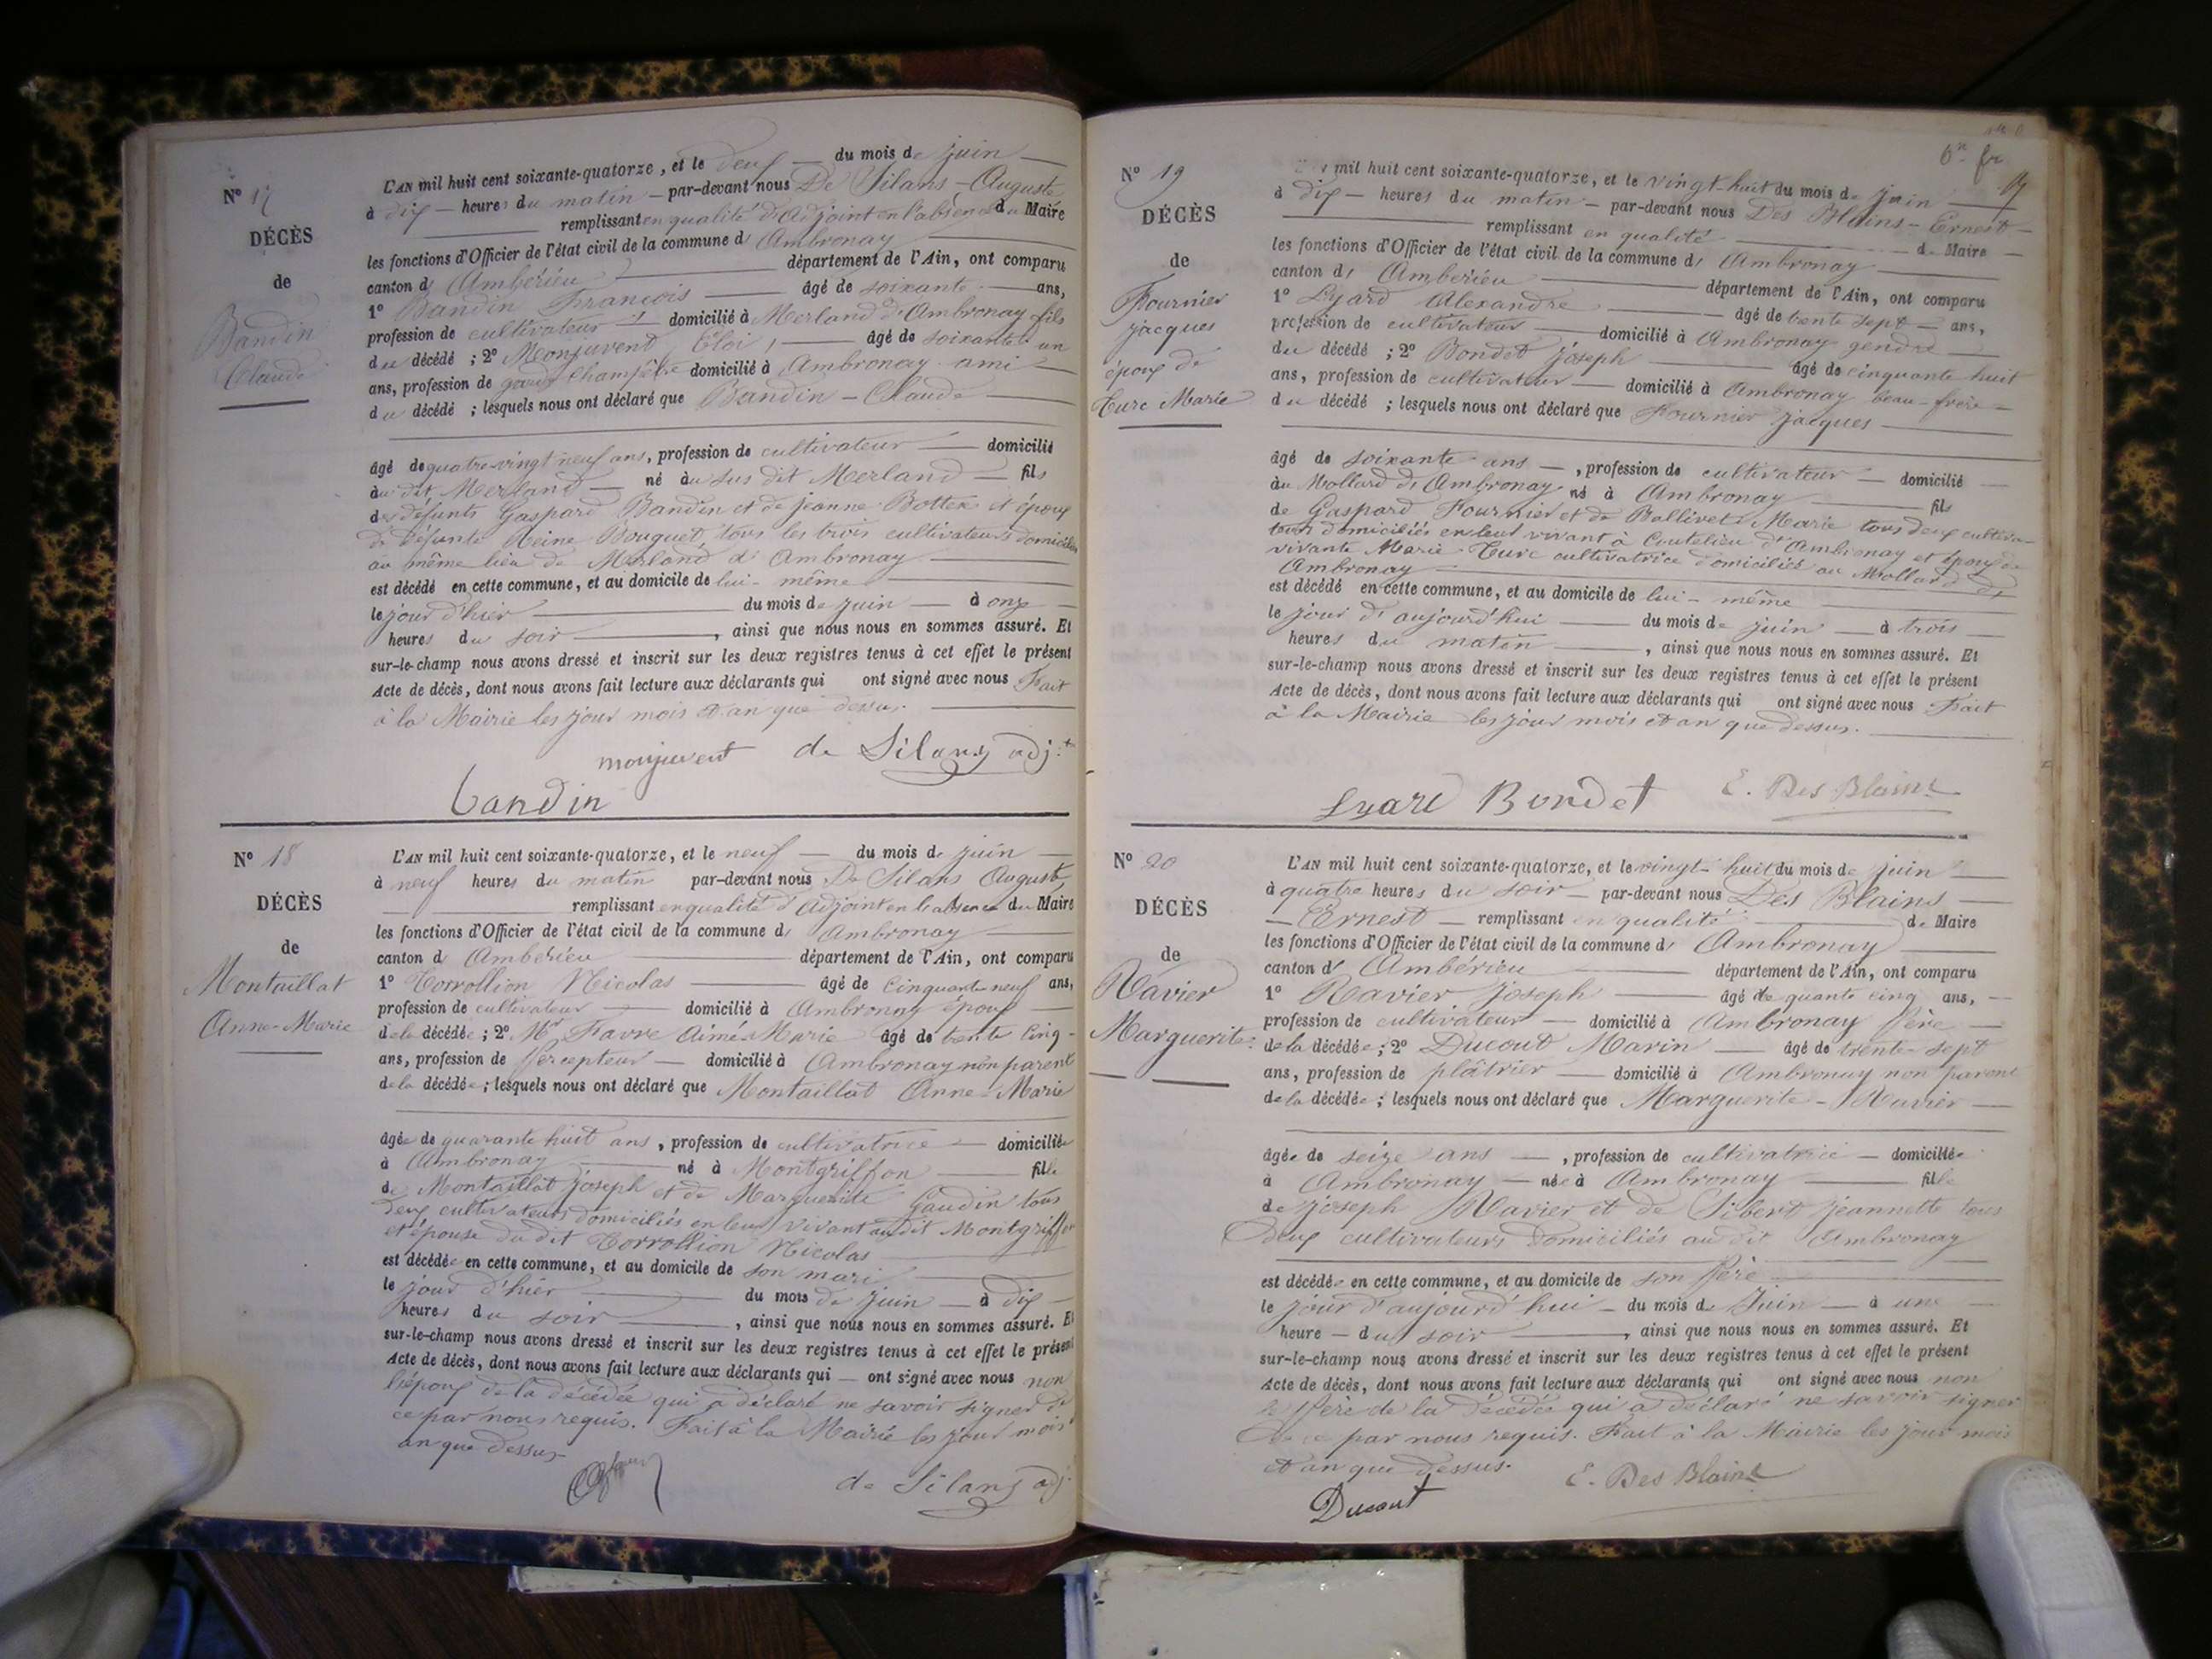 N° 17
DÉCÈS
de
Bandin
Claude
L'AN mil huit cent soixante-quatorze, et le deux — du mois de juin —
à dix — heures du matin — par-devant nous De Silans - Auguste
remplissant en qualité d'adjoint en l'absence du Maire
les fonctions d'Officier de l'état civil de la commune d' Ambronay
canton d' Ambérieu — département de l'Ain, ont comparu
1° Bandin François — âgé de soixante — ans,
profession de cultivateur — domicilié à Merland d'Ambronay fils
du décédé ; 2° Monjuvent Eloi, — âgé de soixante et un
ans, profession de garde champêtre domicilié à Ambronay ami
du décédé ; lesquels nous ont déclaré que Bandin - Claude
âgé de quatre-vingt neuf ans, profession de cultivateur — domicilié
au dit Merland — né au sus dit Merland — fils
des défunts Gaspard Bandin et de Jeanne Bottex et époux
de défunte Reine Bouquet tous les trois cultivateurs domiciliés
au même lieu de Merland d'Ambronay
est décédé en cette commune, et au domicile de lui-même
le jour d'hier — du mois de juin — à onze
heures du soir —, ainsi que nous nous en sommes assuré. Et
sur-le-champ nous avons dressé et inscrit sur les deux registres tenus à cet effet le présent
Acte de décès, dont nous avons fait lecture aux déclarants qui ont signé avec nous Fait
à la Mairie les jour mois et an que dessus.
monjuvent de Silans adj.t
bandin
N° 18
DÉCÈS
de
Montaillat
Anne-Marie
L'AN mil huit cent soixante-quatorze, et le neuf — du mois de juin
à neuf heures du matin par-devant nous De Silans Auguste
remplissant en qualité d'adjoint en l'absence du Maire
les fonctions d'Officier de l'état civil de la commune d' Ambronay
canton d' Ambérieu — département de l'Ain, ont comparu
1° Corrollion Nicolas — âgé de cinquante neuf ans,
profession de cultivateur — domicilié à Ambronay époux
de la décédée ; 2° Mr Favre Aimé Marie âgé de trente cinq -
ans, profession de Percepteur — domicilié à Ambronay non parent
de la décédée ; lesquels nous ont déclaré que Montaillat Anne-Marie
âgée de quarante huit ans, profession de cultivatrice — domiciliée
à Ambronay — né à Montgriffon — fille
de Montaillat Joseph et de Marguerite Gaudin tous
deux cultivateurs domiciliés en leur vivant au dit Montgriffon
et épouse du dit Corrollion Nicolas
est décédée en cette commune, et au domicile de son mari
le jour d'hier — du mois de juin — à dix —
heures du soir —, ainsi que nous nous en sommes assuré. Et
sur-le-champ nous avons dressé et inscrit sur les deux registres tenus à cet effet le présent
Acte de décès, dont nous avons fait lecture aux déclarants qui — ont signé avec nous non
l'époux de la décédée qui a déclaré ne savoir signer de
ce par nous requis. Fait à la Mairie les jour mois
an que dessus
de Silans adj.
6n. fr
N° 19
DÉCÈS
de
Fournier
Jacques
époux de
Turc Marie
mil huit cent soixante-quatorze, et le vingt-huit du mois de juin
à dix — heures du matin — par-devant nous Des Blains - Ernest
remplissant en qualité — de Maire
les fonctions d'Officier de l'état civil de la commune d' Ambronay
canton d' Ambérieu — département de l'Ain, ont comparu
1° Lyard Alexandre — âgé de trente sept — ans,
profession de cultivateur — domicilié à Ambronay gendre
du décédé ; 2° Bondet Joseph — âgé de cinquante huit
ans, profession de cultivateur — domicilié à Ambronay beau-frère
du décédé ; lesquels nous ont déclaré que Fournier Jacques
âgé de soixante ans —, profession de cultivateur — domicilié
au Mollard d'Ambronay né à Ambronay — fils
de Gaspard Fournier et de Bollivet Marie tous deux cultiva-
teurs domiciliés en leur vivant à Coutelieu d'Ambronay et époux de
vivante Marie Turc cultivatrice domiciliée au Mollard d'
Ambronay
est décédé en cette commune, et au domicile de lui-même
le jour d'aujourd'hui — du mois de juin — à trois
heures du matin —, ainsi que nous nous en sommes assuré. Et
sur-le-champ nous avons dressé et inscrit sur les deux registres tenus à cet effet le présent
Acte de décès, dont nous avons fait lecture aux déclarants qui ont signé avec nous Fait
à la Mairie les jour mois et an que dessus.
Lyard Bondet E. Des Blains
N° 20
DÉCÈS
de
Ravier
Marguerite
L'AN mil huit cent soixante-quatorze, et le vingt-huit du mois de juin
à quatre heures du soir — par-devant nous Des Blains
— Ernest — remplissant en qualité — de Maire
les fonctions d'Officier de l'état civil de la commune d' Ambronay
canton d' Ambérieu — département de l'Ain, ont comparu
1° Ravier Joseph — âgé de quante cinq ans,
profession de cultivateur — domicilié à Ambronay Père
de la décédée ; 2° Ducout Marin — âgé de trente-sept
ans, profession de plâtrier — domicilié à Ambronay non parent
de la décédée ; lesquels nous ont déclaré que Marguerite - Ravier —
âgée de seize ans —, profession de cultivatrice — domiciliée
à Ambronay — née à Ambronay — fille
de Joseph Ravier et de Sibert Jeannette tous
deux cultivateurs domiciliés au dit Ambronay
est décédée en cette commune, et au domicile de son Père
le jour d'aujourd'hui — du mois de Juin — à une
heure — du soir —, ainsi que nous nous en sommes assuré. Et
sur-le-champ nous avons dressé et inscrit sur les deux registres tenus à cet effet le présent
Acte de décès, dont nous avons fait lecture aux déclarants qui ont signé avec nous non
le Père de la décédée qui a déclaré ne savoir signer
de ce par nous requis. Fait à la Mairie les jour mois
et an que dessus. E. Des Blains
Ducout